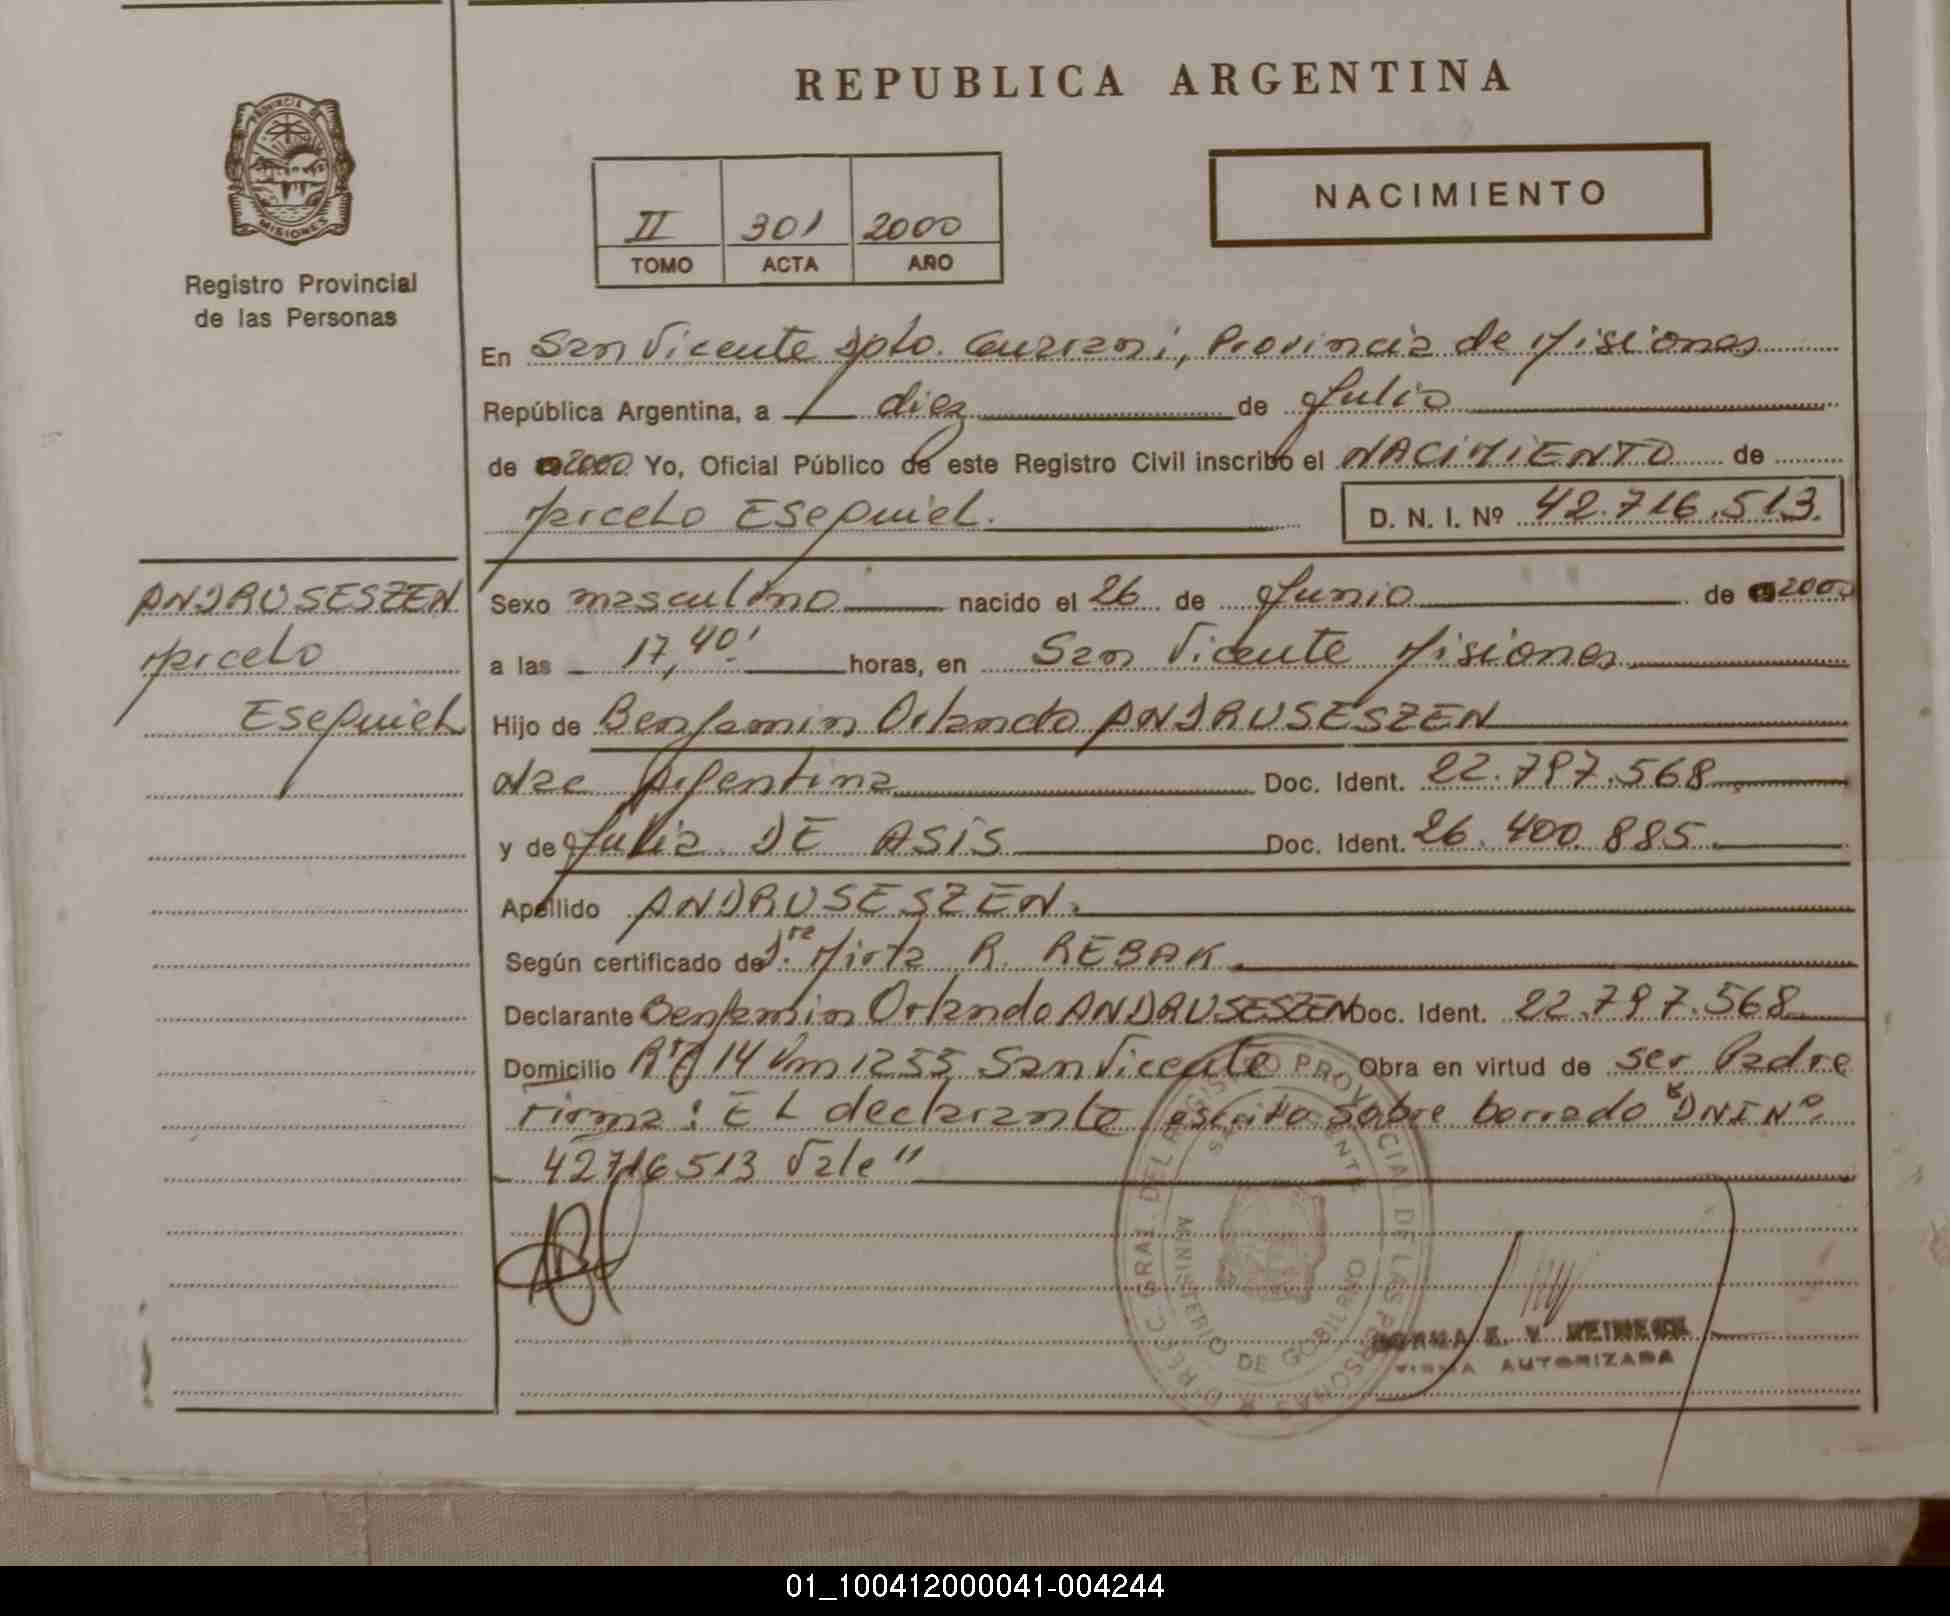 REPUBLICA ARGENTINA
PROVINCIA
MISIONES
Registro Provincial
de las Personas
NACIMIENTO
II 301 2000
TOMO ACTA AÑO
En San Vicente Dpto. Guarani, Provincia de Misiones
República Argentina, a diez de Julio
de 2000 Yo, Oficial Público de este Registro Civil inscribo el NACIMIENTO de
Marcelo Esequiel. D. N. I. Nº 42.716.513.
ANDRUSESZEN
Marcelo
Esequiel
Sexo masculino nacido el 26 de Junio de 2000
a las 17,40' horas, en San Vicente Misiones
Hijo de Benjamin Orlando ANDRUSESZEN
Nac Argentina Doc. Ident. 22.797.568
y de Julia DE ASIS Doc. Ident. 26.400.885
Apellido ANDRUSESZEN.
Según certificado de Dra Mirta R. REBAK
Declarante Benjamin Orlando ANDRUSESZEN Doc. Ident. 22.797.568
Domicilio Rta 14 Km 1255 San Vicente Obra en virtud de ser Padre
Firma: El declarante escrito sobre borrado "DNI Nº
42716513 Vale"
DIREC. GRAL. DEL REGISTRO PROVINCIAL DE LAS PERSONAS
SAN VICENTE
MINISTERIO DE GOBIERNO
NORMA E. V.
FIRMA AUTORIZADA
01_100412000041-004244